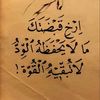 إرخِ قَبضَتكَ
مَا لَا يَحفَظهُ الوُدُّ
لَا تُبقيهِ القُوّة!